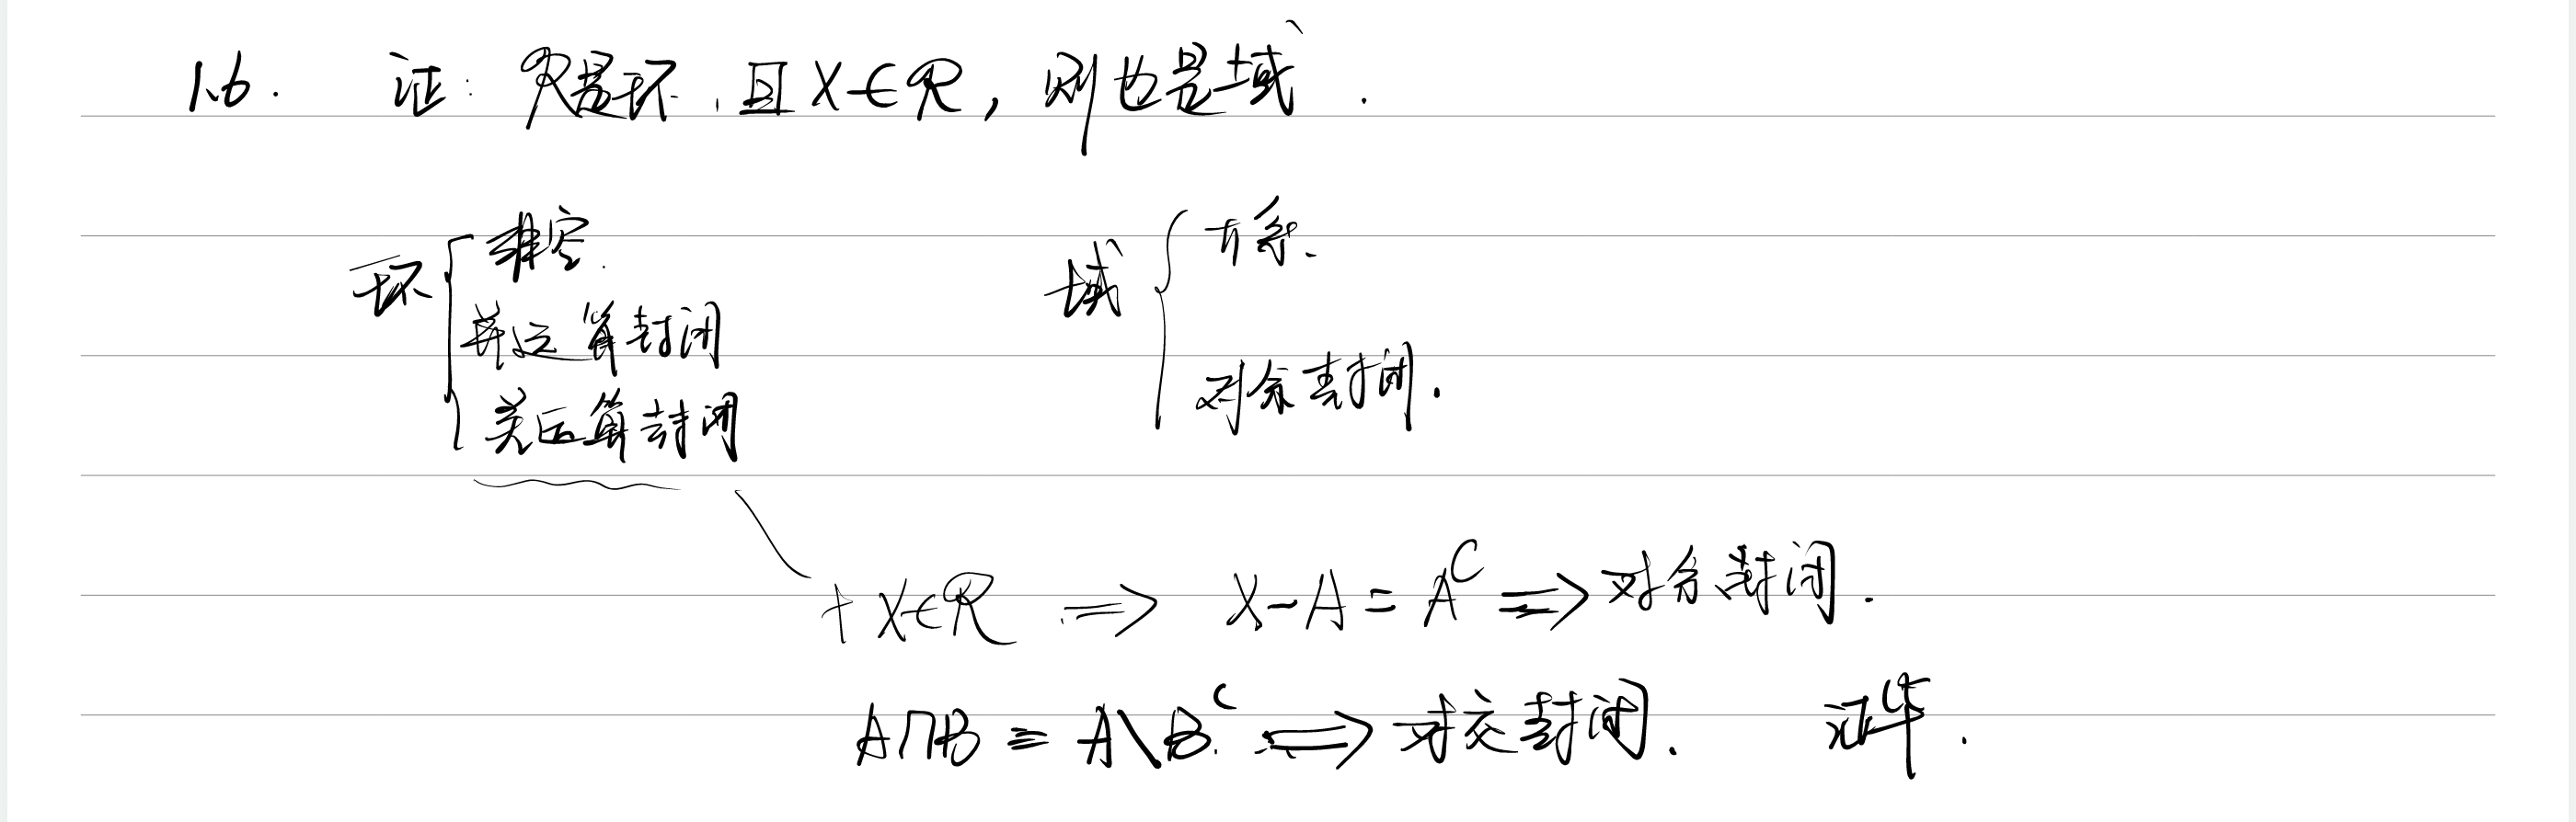 1.6. 证: ℛ是环, 且 X∈ℛ, 则也是域.
环 { 非空.
并运算封闭
差运算封闭
域 { π系.
对余封闭.
+ X∈ℛ ⇒ X-A = A^C ⇒ 对余封闭.
A∩B = A\B^C ⇒ 对交封闭. 证毕.